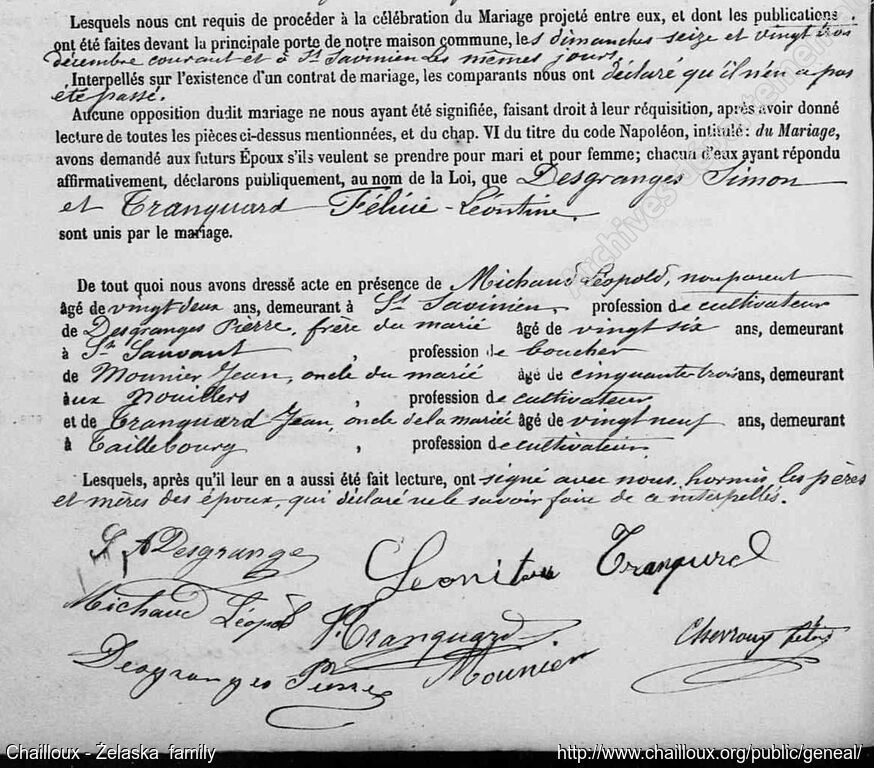 Lesquels nous ont requis de procéder à la célébration du Mariage projeté entre eux, et dont les publications
ont été faites devant la principale porte de notre maison commune, les dimanches seize et vingt trois
décembre courant et à St Savinien les mêmes jours,
Interpellés sur l'existence d'un contrat de mariage, les comparants nous ont déclaré qu'il n'en a pas
été passé.
Aucune opposition dudit mariage ne nous ayant été signifiée, faisant droit à leur réquisition, après avoir donné
lecture de toutes les pièces ci-dessus mentionnées, et du chap. VI du titre du code Napoléon, intitulé : du Mariage,
avons demandé aux futurs Époux s'ils veulent se prendre pour mari et pour femme; chacun d'eux ayant répondu
affirmativement, déclarons publiquement, au nom de la Loi, que Desgranges Simon
et Tranquard Félicie-Léontine.
sont unis par le mariage.
De tout quoi nous avons dressé acte en présence de Michaud Léopold, non parent
âgé de vingt deux ans, demeurant à St Savinien, profession de cultivateur
de Desgranges Pierre, frère du marié âgé de vingt six ans, demeurant
à St Sauvant, profession de boucher
de Mounier Jean, oncle du marié âgé de cinquante trois ans, demeurant
aux Nouillers, profession de cultivateur
et de Tranquard Jean, oncle de la mariée âgé de vingt neuf ans, demeurant
à Taillebourg, profession de cultivateur.
Lesquels, après qu'il leur en a aussi été fait lecture, ont signé avec nous, hormis les pères
et mères des époux, qui déclaré ne le savoir faire de ce interpellés.
S A Desgrange
Leonitou Tranqurd
Michaud Léopold
J. Tranquard
Desgranges Pierre
Mounier
Archives départementales
Chailloux - Żelaska family
http://www.chailloux.org/public/geneal/